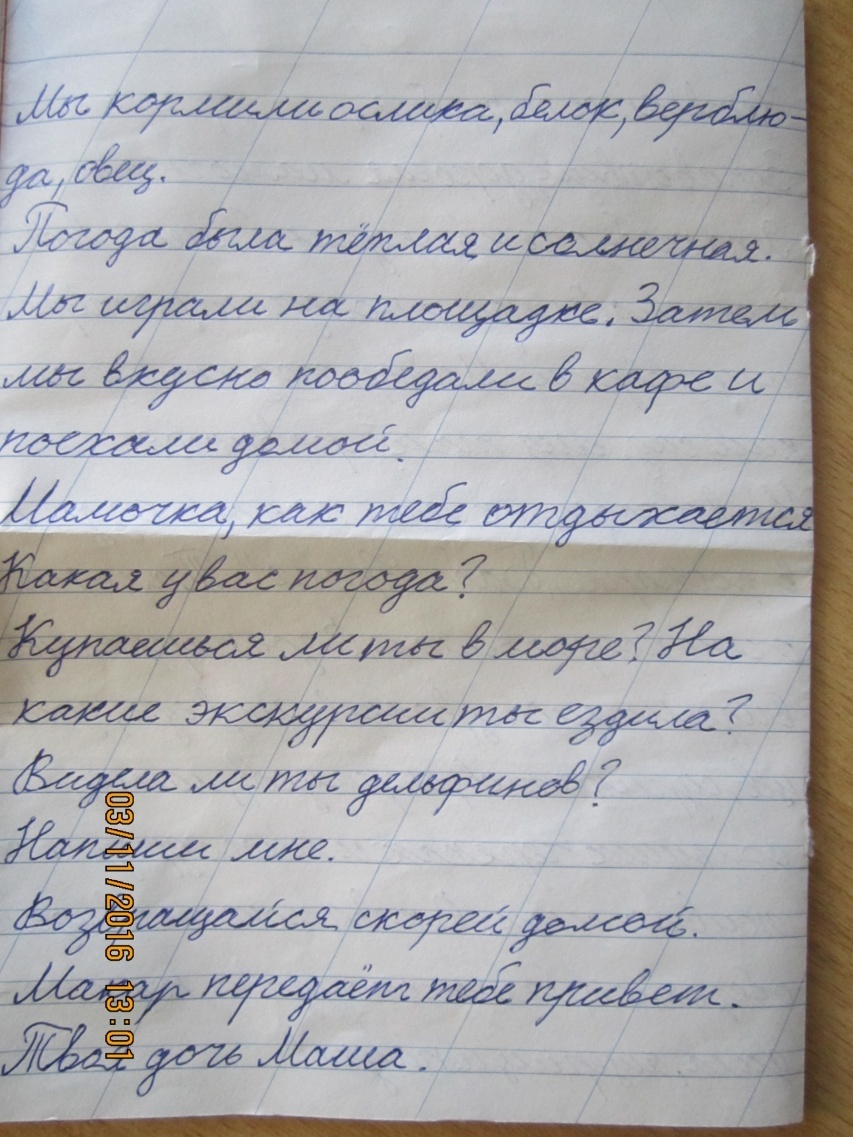 Мы кормили ослика, белок, верблю-
да, овец.
Погода была тёплая и солнечная.
Мы играли на площадке. Затем
мы вкусно пообедали в кафе и
поехали домой.
Мамочка, как тебе отдыхается
Какая у вас погода?
Купаешься ли ты в море? На
какие экскурсии ты ездила?
Видела ли ты дельфинов?
Напиши мне.
Возвращайся скорей домой.
Макар передаёт тебе привет.
Твоя дочь Маша.
03/11/2016 13:01